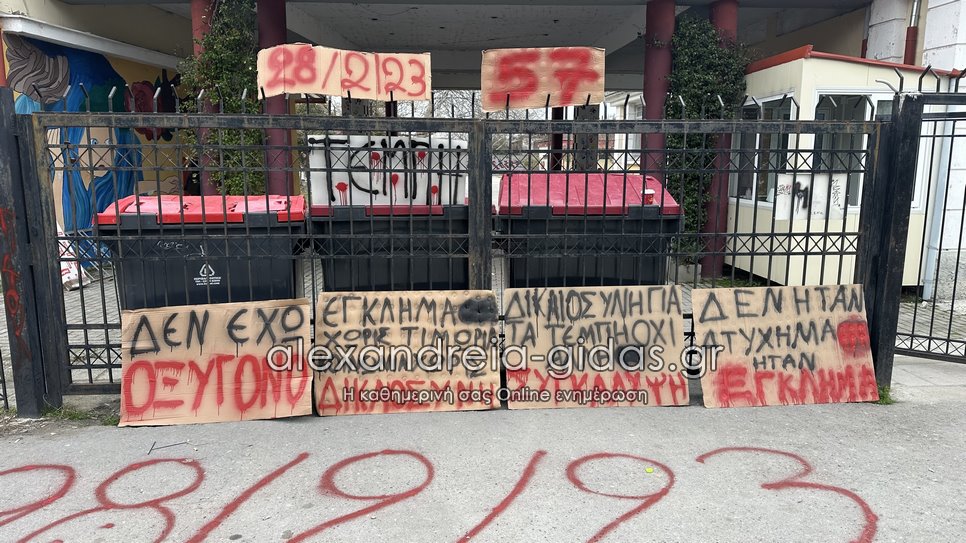 28/2/23
57
ΤΕΜΠΗ
ΔΕΝ ΕΧΩ
ΟΞΥΓΟΝΟ
ΕΓΚΛΗΜΑ
ΧΩΡΙΣ ΤΙΜΩΡΙΑ
ΔΙΚΑΙΟΣΥΝΗ
ΔΙΚΑΙΟΣΥΝΗ ΓΙΑ
ΤΑ ΤΕΜΠΗ ΟΧΙ
ΣΥΓΚΑΛΥΨΗ
ΔΕΝ ΗΤΑΝ
ΑΤΥΧΗΜΑ
ΗΤΑΝ
ΕΓΚΛΗΜΑ
alexandreia-gidas.gr
Η καθημερινή σας Online ενημέρωση
28/2/23